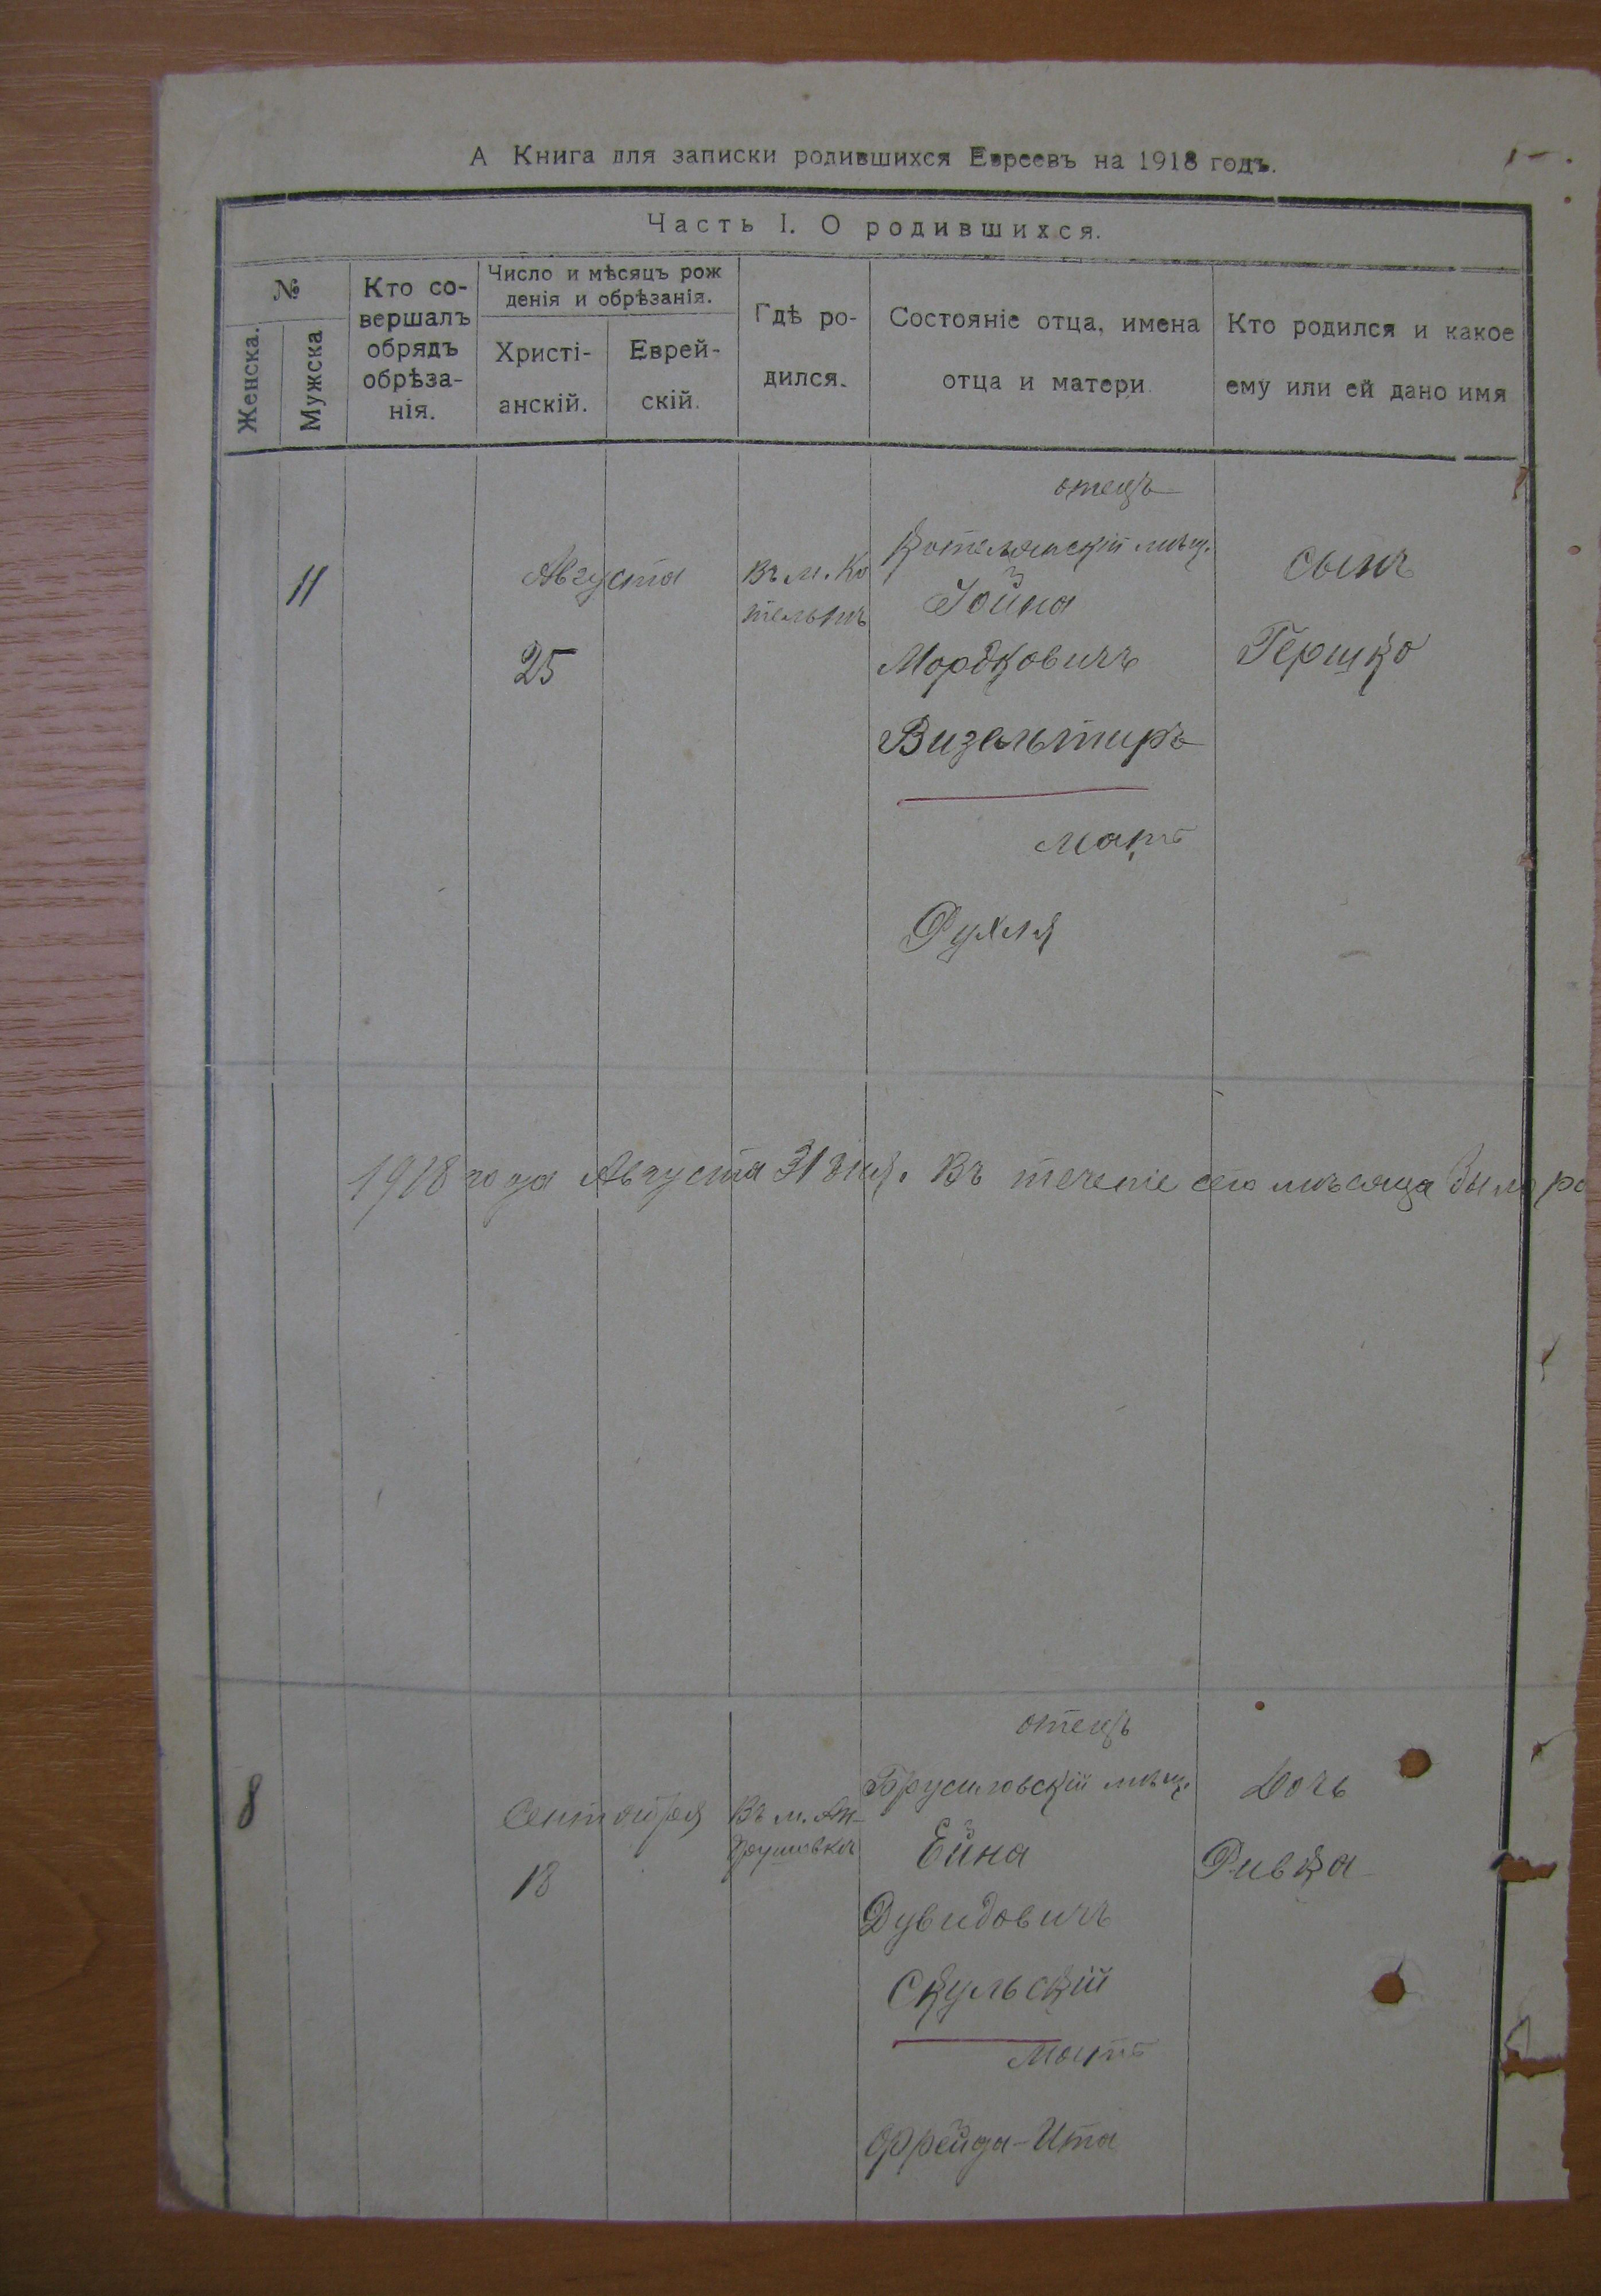 А Книга для записки родившихся Евреевъ на 1918 годъ.
Часть I. О родившихся.
№
Женска.
Мужска
Кто со-
вершалъ
обрядъ
обрѣза-
нія.
Число и мѣсяцъ рож
денія и обрѣзанія.
Христі-
анскій.
Еврей-
скій.
Гдѣ ро-
дился.
Состояніе отца, имена
отца и матери
Кто родился и какое
ему или ей дано имя
11
Августа
25
Въ м. Ко
тельнѣ
отецъ
Котелянскій мѣщ.
Іойна
Мордковичъ
Визельтиръ
мать
Рухля
сынъ
Гершко
1918 года Августа 31 дня. Въ теченіе сего мѣсяца было ро
8
Сентября
18
Въ м. Ан-
друшовкѣ
отецъ
Брусиловскій мѣщ.
Ейна
Дувидовичъ
Скульскій
мать
Фрейда-Ита
Дочь
Ривка